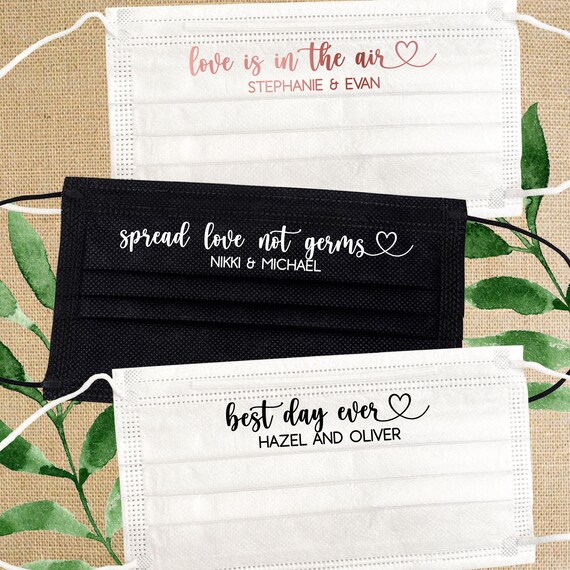 love is in the air
STEPHANIE & EVAN
spread love not germs
NIKKI & MICHAEL
best day ever
HAZEL AND OLIVER